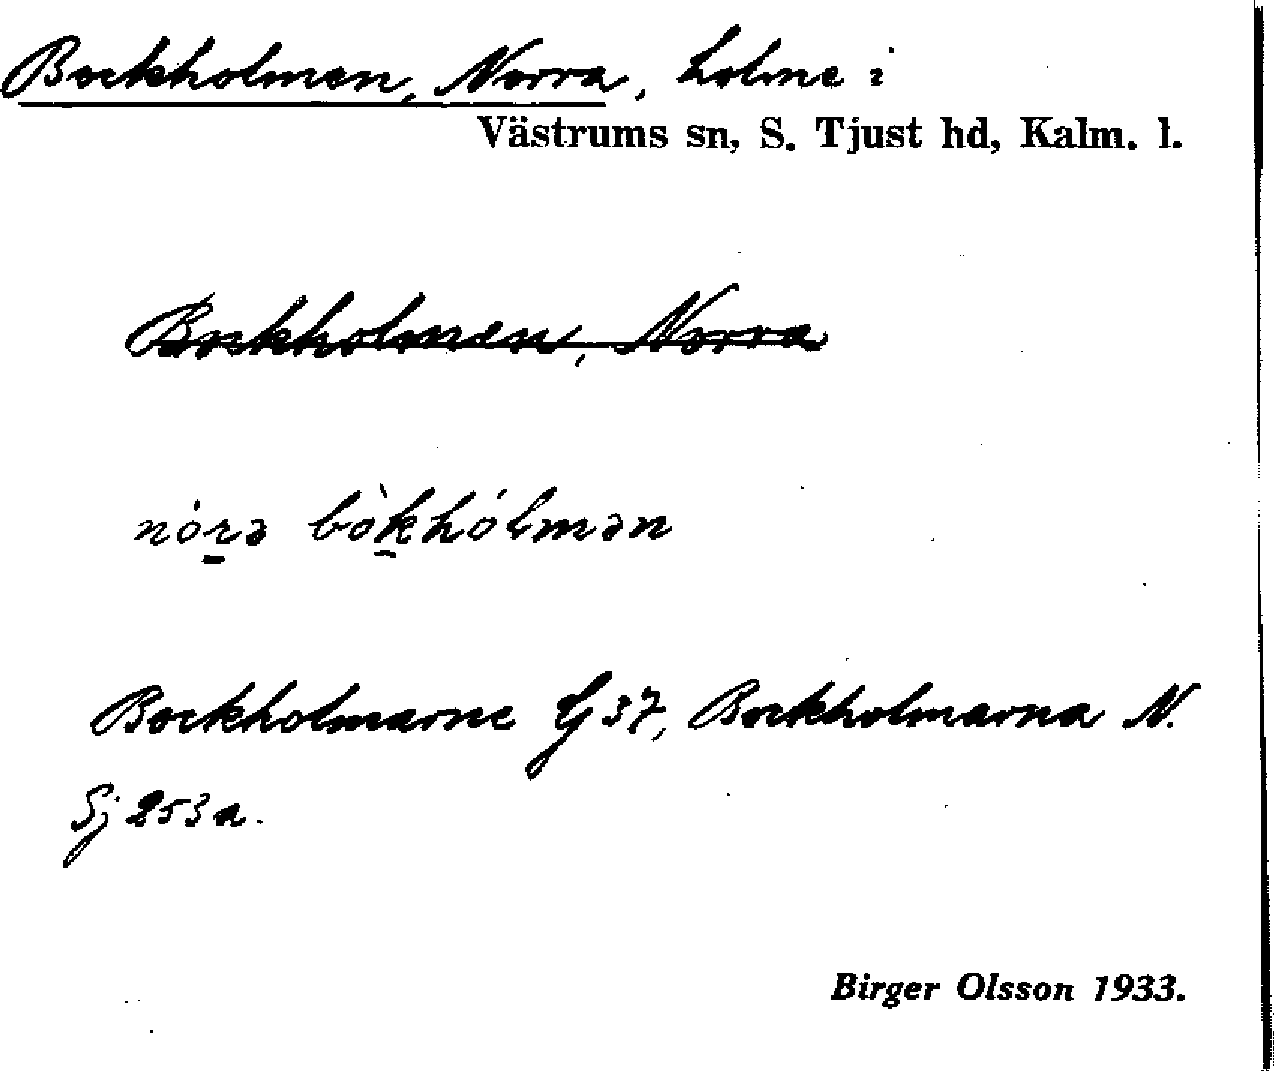 Bockholmen, Norra, holme i
Västrums sn, S. Tjust hd, Kalm. l.
Bockholmen, Norra
nórə bòkhólmən
Bockholmarne G 37, Bockholmarna N.
Sj 253a.
Birger Olsson 1933.